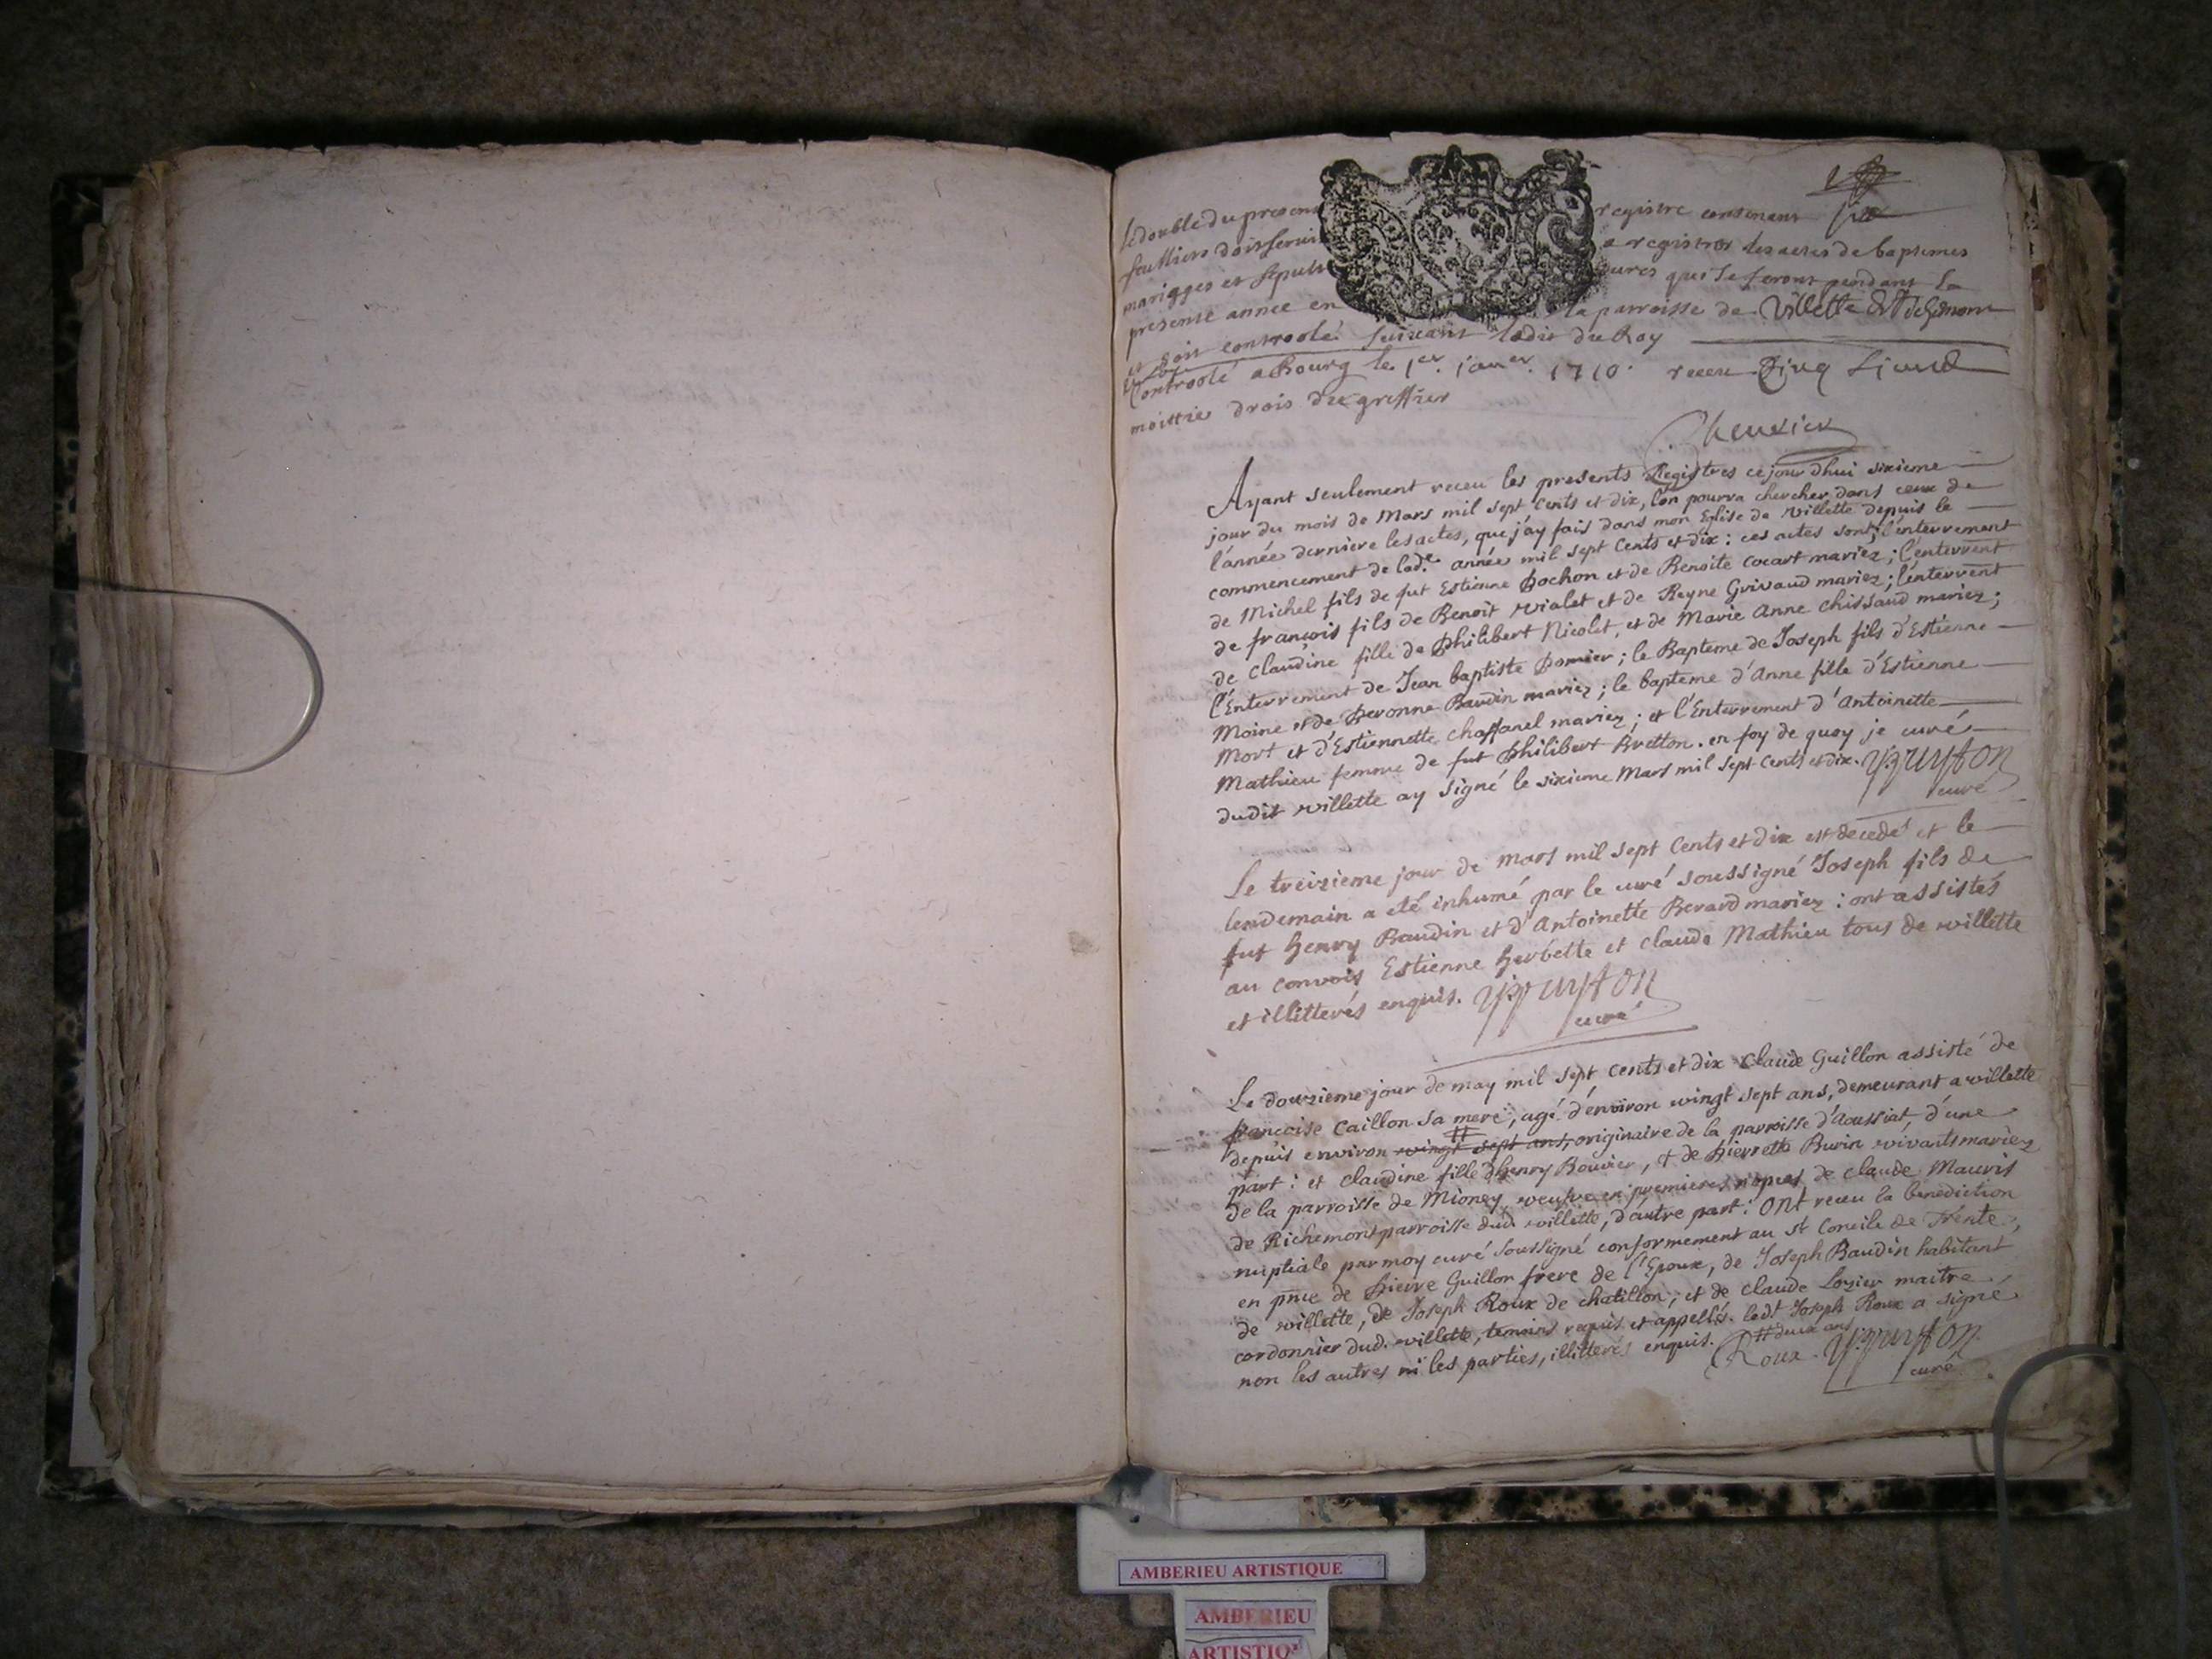 le double du present registre contenant six
feulliers doit servir a registrer les actes de baptemes
mariages et sepultures qui se feront pendant la
presente annee en la parroisse de Villette
et soit controolé suivant ledit du Roy
Controolé a Bourg le 1er. janer. 1710. receu Cinq
moittie drois du greffier
Ayant seulement receu les presents Registres ce jour dhui sixieme
jour du mois de Mars mil sept cents et dix, l'on pourra chercher dans ceux de
l'année derniere les actes, que j'ay fais dans mon Eglise de villette depuis le
commencement de lade. année mil sept cents et dix : ces actes sont, l'enterrement
de Michel fils de fut Estienne Pochon et de Benoite cocart mariez ; l'enterrent
de françois fils de Benoit vialet et de Reyne Grivaud mariez ; l'enterrent
de claudine fille de Philibert Nicolet, et de Marie Anne chissaud mariez ;
l'Enterrement de Jean baptiste ; le Bapteme de Joseph fils d'Estienne
Moine et de Peronne Baudin mariez ; le bapteme d'Anne fille d'Estienne
Mort et d'Estiennette chaffanel mariez ; et l'Enterrement d'Antoinette
Mathieu femme de fut Philibert Bretton. en foy de quoy je curé
dudit villette ay signé le sixieme Mars mil sept cents et dix.
curé
Le treizieme jour de Mars mil sept Cents et dix est decedé et le
lendemain a eté inhumé par le curé soussigné Joseph fils de
fut henry Baudin et d'Antoinette Berard mariez : ont assistés
au convois Estienne herbette et claude Mathieu tous de villette
et illitterés enquis.
curé
Le douzieme jour de may mil sept cents et dix claude Guillon assisté de
françoise Caillon sa mere, agé d'environ vingt sept ans, demeurant a villette
depuis environ vingt sept ans, originaire de la parroisse d'Aoussiat, d'une
part : et claudine fille d'henry Bouvier, & de pierrette Burin vivants mariez
de la parroisse de Mioney, veufve en premieres nopces de claude Mauris
de Richemont parroisse dud. villette, d'autre part : ont receu la benediction
nuptiale par moy curé soussigné conformement au st Concile de Trente,
en pnce de pierre Guillon frere de l'Epoux, de Joseph Baudin habitant
de villette, de Joseph Roux de chatillon ; et de claude Lozier maitre
cordonnier dud. villette, temoins requis et appellés. ledt Joseph Roux a signé
non les autres ni les parties, illitterés enquis. # deux ans
Roux.
curé
AMBERIEU ARTISTIQUE
AMBERIEU
ARTISTIQ